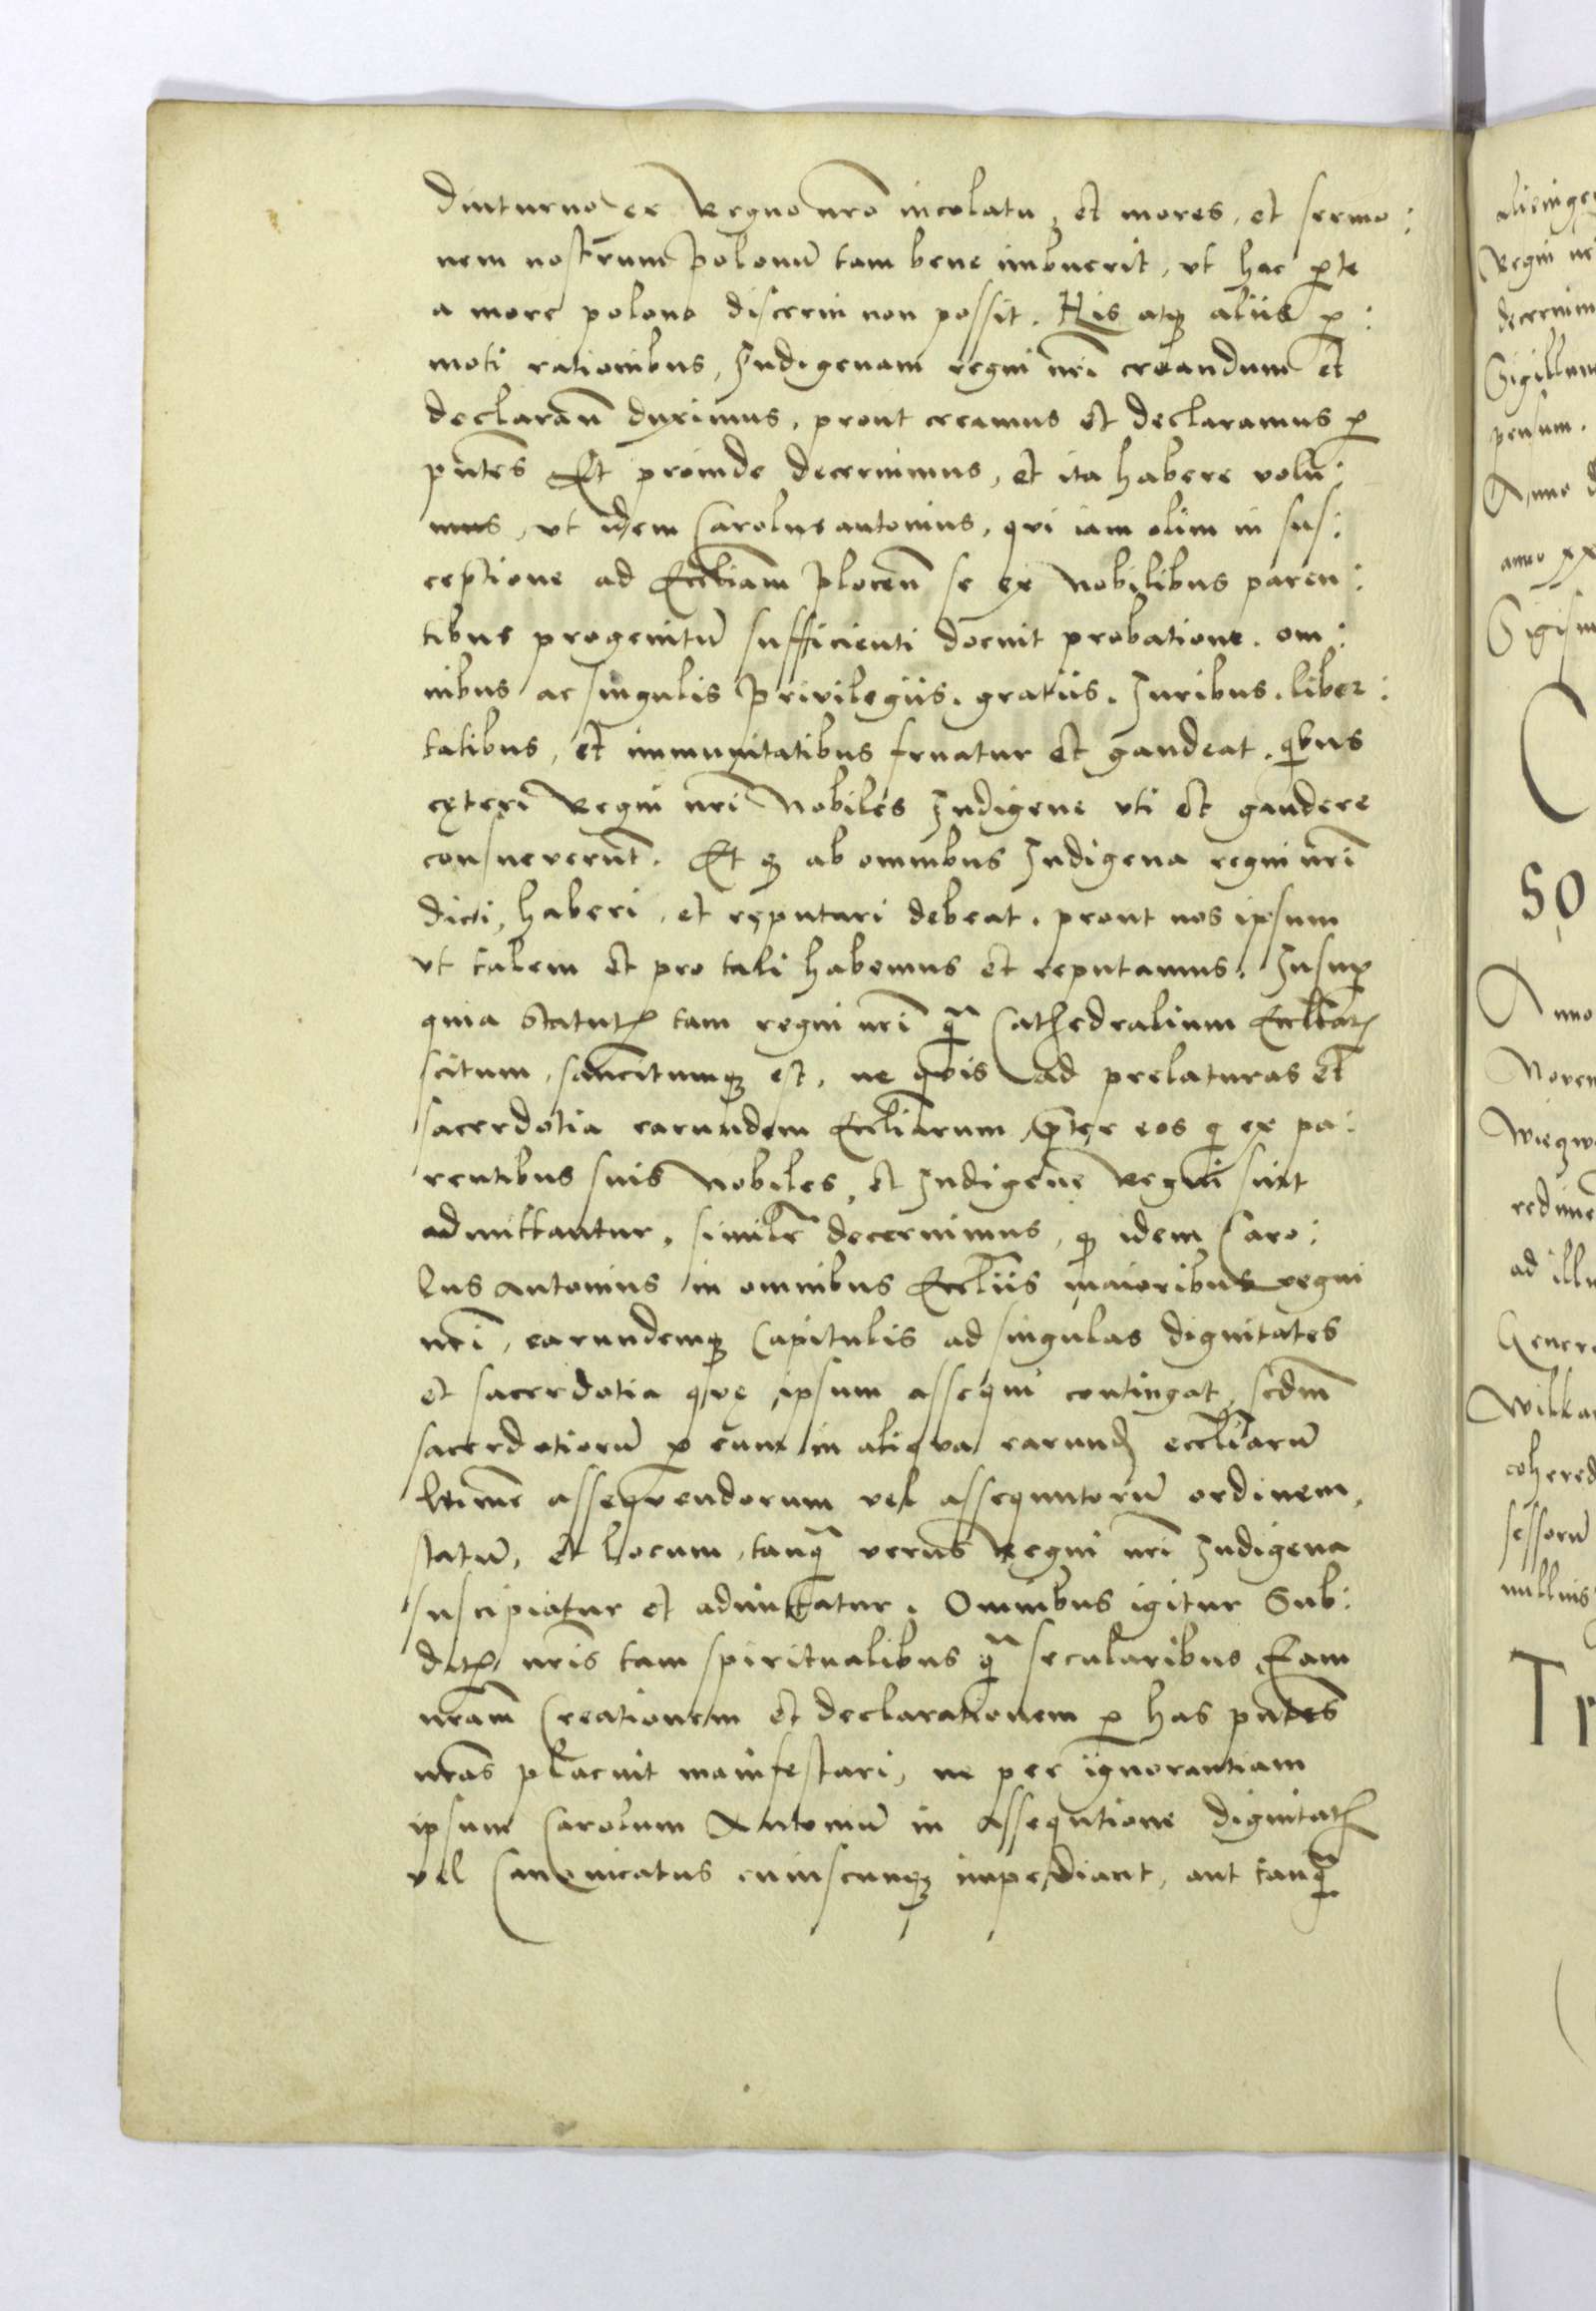 diuturno ex Regno nrō incolatu, et mores, et sermo:
nem nostrum Polonū tam bene imbuerit, vt hac pte
a more polono discerni non possit. His atq; aliis p:
moti rationibus, Indigenam regni nrī creandum et
declarañ duximus, prout creamus et declaramus p
pñtes Et proinde decernimus, et ita habere volu:
mus, vt idem Carolus antonius, qvi iam olim in sus:
ceptione ad Ecclīam Plocen̄ se ex Nobilibus paren:
tibus progenitū sufficienti docuit probatione. om:
nibus ac singulis Privilegiis. gratiis. Iuribus. liber:
tatibus, et immunitatibus fruatur et gaudeat. qbus
cęteri Regni nrī Nobiles Indigene vti et gaudere
consueverūt. Et q; ab omnibus Indigena regni nrī
dici, haberi, et reputari debeat. prout nos ipsum
vt talem et pro tali habemus et reputamus. Insup
quia Statutꝭ tam regni nrī q̄ Cathedralium Eccliarꝭ
scitum, sancitumq; est, ne qvis ad prelaturas et
sacerdotia earundem Eccliarum pter eos q ex pa:
rentibus suis Nobiles, et Indigene Regni sint
admittantur, similr̄ decernimus, q; idem Caro:
lus antonius in omnibus Eccliis maioribus regni
nrī, earundemq; Capitulis ad singulas dignitates
et sacerdotia qvę ipsum assequi contingat, scdm̄
sacerdotiorū p eum in aliqva earund eccliarū
ltime asseqvendorum vel assequutorū ordinem,
statū, et locum, tanq̄ verus Regni nrī Indigena
suscipiatur et admittatur. Omnibus igitur Sub:
ditꝭ nrīs tam spiritualibus q̄ secularibus Eam
nrām Creationem et declarationem p has pñtes
nrās placuit manifestari, ne per ignorantiam
ipsum Carolum Antoniū in assequtione dignitatꝭ
vel Canonicatus cuiuscunq; impediant, aut tanq̄